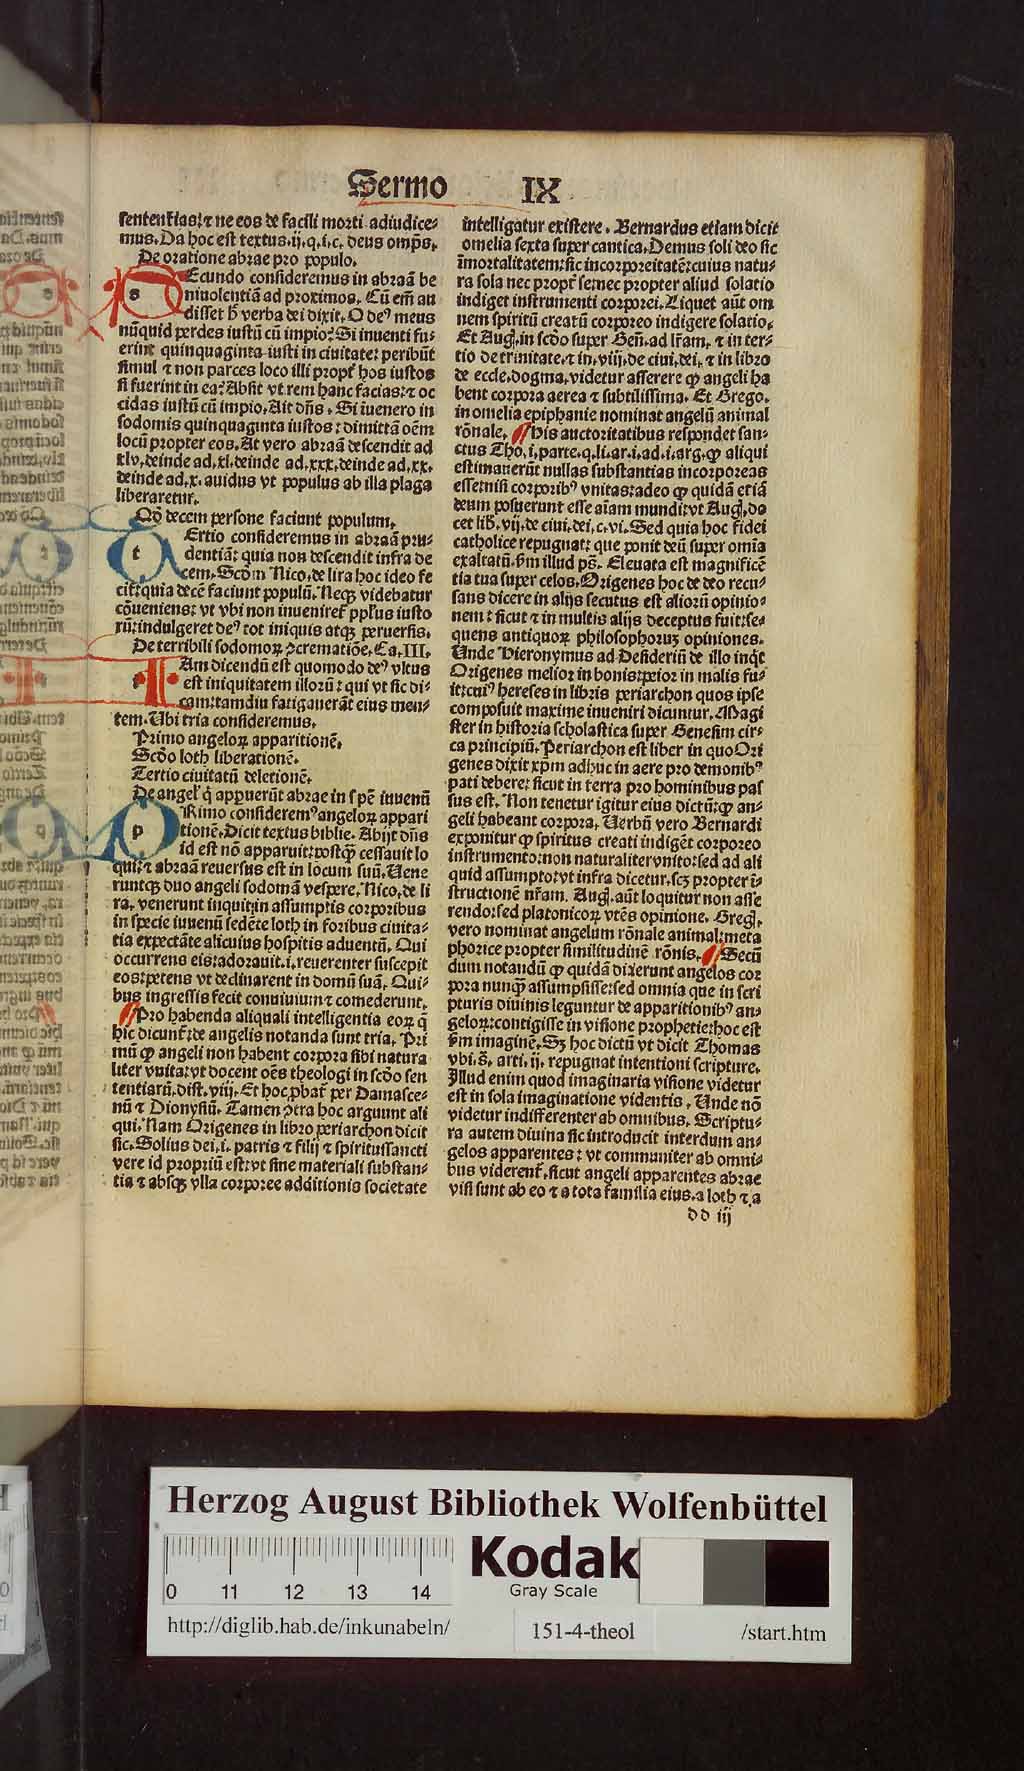 Sermo IX
sententias: ⁊ ne eos de facili morti adiudice-
mus. Da hoc est textus. ij. q. i. c. deus omp̄s.
De oratione abrae pro populo.
SEcundo consideremus in abraā be
niuolentiā ad proximos. Cū em̄ au
disset h̄ verba dei dixit. O deꝰ meus
nūquid perdes iustū cū impio? Si inuenti fu-
erint quinquaginta iusti in ciuitate: peribūt
simul ⁊ non parces loco illi propt̄ hos iustos
si fuerint in ea? Absit vt rem hanc facias: ⁊ oc
cidas iustū cū impio. Ait dn̄s. Si īuenero in
sodomis quinquaginta iustos: dimittā oēm
locū propter eos. At vero abraā descendit ad
xlv. deinde ad. xl. deinde ad. xxx. deinde ad. xx.
deinde ad. x. auidus vt populus ab illa plaga
liberaretur.
Qō decem persone faciunt populum.
tErtio consideremus in abraā pru-
dentiā: quia non descendit infra de
cem. Scd̄m Nico. de lira hoc ideo fe
cit: quia decē faciunt populū. Neqꝫ videbatur
cōueniens: vt vbi non inueniret̄ pplꝰus iusto
rū: indulgeret deꝰ tot iniquis atqꝫ peruersis.
De terribili sodomoꝝ ꝯcrematiōe. Ca. III.
IAm dicendū est quomodo deꝰ vltus
est iniquitatem illorū: qui vt sic di-
cam: tamdiu fatigauerāt eius men-
tem. Ubi tria consideremus.
Primo angeloꝝ apparitionē.
Scd̄o loth liberationē.
Tertio ciuitatū deletionē.
De angel̄ q̄ apparuerūt abrae in spē iuuenū
pRimo consideremꝰ angeloꝝ appari
tionē. Dicit textus biblie. Abijt dn̄s
id est nō apparuit: postq̄ꝫ cessauit lo
qui: ⁊ abraā reuersus est in locum suū. Uene
runtqꝫ duo angeli sodomā vespere. Nico. de li
ra. venerunt inquit: in assumptis corporibus
in specie iuuenū sedēte loth in foribus ciuita-
tis expectāte alicuius hospitis aduentū. Qui
occurrens eis: adorauit. i. reuerenter suscepit
eos: petens vt declinarent in domū suā. Qui-
bus ingressis fecit conuiuium ⁊ comederunt.
¶Pro habenda aliquali intelligentia eoꝝ q̄
hic dicunt̄: de angelis notanda sunt tria. Pri
mū ꝙ angeli non habent corpora sibi natura
liter vnita: vt docent oēs theologi in scd̄o sen
tentiarū. dist. viij. Et hoc ꝓbat̄ per Damasce-
nū ⁊ Dionysiū. Tamen ꝯtra hoc arguunt ali
qui. Nam Origenes in libro periarchon dicit
sic. Solius dei. i. patris ⁊ filij ⁊ spiritussancti
vere id propriū est: vt sine materiali substan-
tia ⁊ absqꝫ vlla corporee additionis societate
intelligatur existere. Bernardus etiam dicit
omelia sexta super cantica. Demus soli deo sic
īmortalitatem: sic incorporeitatē: cuius natu-
ra sola nec propt̄ se: nec propter aliud solatio
indiget instrumenti corporei. Liquet aūt om
nem spiritū creatū corporeo indigere solatio.
Et Aug. in scd̄o super Gen̄. ad lr̄am. ⁊ in ter-
tio de trinitate. ⁊ in. viij. de ciui. dei. ⁊ in libro
de eccle. dogma. videtur asserere ꝙ angeli ha
bent corpora aerea ⁊ subtilissima. Et Grego.
in omelia epiphanie nominat angelū animal
rōnale. ¶His auctoritatibus respondet san-
ctus Tho. i. parte. q. li. ar. i. ad. i. arg. ꝙ aliqui
estimauerūt nullas substantias incorporeas
esse: nisi corporibꝰ vnitas: adeo ꝙ quidā etiā
deum posuerunt esse aīam mundi: vt Aug. do
cet lib̄. vij. de ciui. dei. c. vi. Sed quia hoc fidei
catholice repugnat: que ponit deū super om̄ia
exaltatū. ẜm illud ps̄. Eleuata est magnificē
tia tua super celos. Origenes hoc de deo recu-
sans dicere in alijs secutus est aliorū opinio-
nem: sicut ⁊ in multis alijs deceptus fuit: se-
quens antiquoꝝ philosophoruꝫ opiniones.
Unde Hieronymus ad Desideriū de illo inq̄t
Origenes melior in bonis: peior in malis fu-
it: cuiꝰ hereses in libris periarchon quos ipse
composuit maxime inueniri dicuntur. Magi
ster in historia scholastica super Genesim cir-
ca principiū. Periarchon est liber in quo Ori
genes dixit xp̄m adhuc in aere pro demonibꝰ
pati debere: sicut in terra pro hominibus pas
sus est. Non tenetur igitur eius dictū: ꝙ an-
geli habeant corpora. Uerbū vero Bernardi
exponitur ꝙ spiritus creati indigēt corporeo
instrumento: non naturaliter vnito: sed ad ali
quid assumpto: vt infra dicetur. scꝫ propter ī-
structionē nr̄am. Aug. aūt loquitur non asse
rendo: sed platonicoꝝ vtēs opinione. Greg.
vero nominat angelum rōnale animal: meta
phorice propter similitudinē rōnis. ¶Secū
dum notandū ꝙ quidā dixerunt angelos cor
pora nunq̄ꝫ assumpsisse: sed omnia que in scri
pturis diuinis leguntur de apparitionibꝰ an-
geloꝝ: contigisse in visione prophetie: hoc est
ẜm imaginē. Sꝫ hoc dictū vt dicit Thomas
vbi. s̄. arti. ij. repugnat intentioni scripture.
Illud enim quod imaginaria visione videtur
est in sola imaginatione videntis. Unde nō
videtur indifferenter ab omnibus. Scriptu-
ra autem diuina sic introducit interdum an-
gelos apparentes: vt communiter ab omni-
bus viderent̄. sicut angeli apparentes abrae
visi sunt ab eo ⁊ a tota familia eius. a loth ⁊. a
dd iij
Herzog August Bibliothek Wolfenbüttel
0 11 12 13 14
Kodak
Gray Scale
http://diglib.hab.de/inkunabeln/
151-4-theol
/start.htm